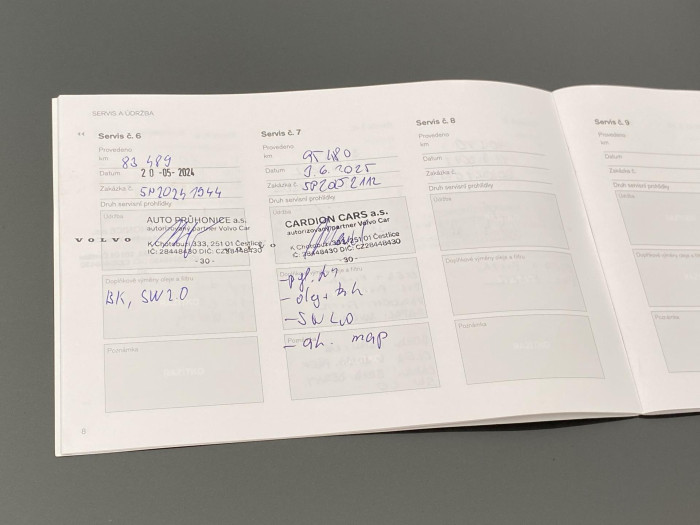 SERVIS A ÚDRŽBA
Servis č. 6
Provedeno
km 83 489
Datum 20 -05- 2024
Zakázka č. SP20241944
Druh servisní prohlídky
Údržba
AUTO PRŮHONICE a.s.
autorizovaný partner Volvo Car
VOLVO
K Chotobuzi 333, 251 01 Čestlice
IČ: 28448430 DIČ: CZ28448430
- 30 -
Doplňkové výměny oleje a filtru
BK, SW2.0
Poznámka
Servis č. 7
Provedeno
km 95480
Datum 9.6.2025
Zakázka č. SP2052112
Druh servisní prohlídky
Údržba
CARDION CARS a.s.
autorizovaný partner Volvo Car
K Chotobuzi 333, 251 01 Čestlice
IČ: 28448430 DIČ: CZ28448430
- 30 -
map
Servis č. 8
Provedeno
km
Datum
Zakázka č.
Druh servisní prohlídky
Údržba
Doplňkové výměny oleje a filtru
Poznámka
Servis č. 9
Provedeno
km
Datum
Zakázka č.
Druh servisní prohlídky
Údržba
Doplňkové výměny oleje a
Poznámka
8